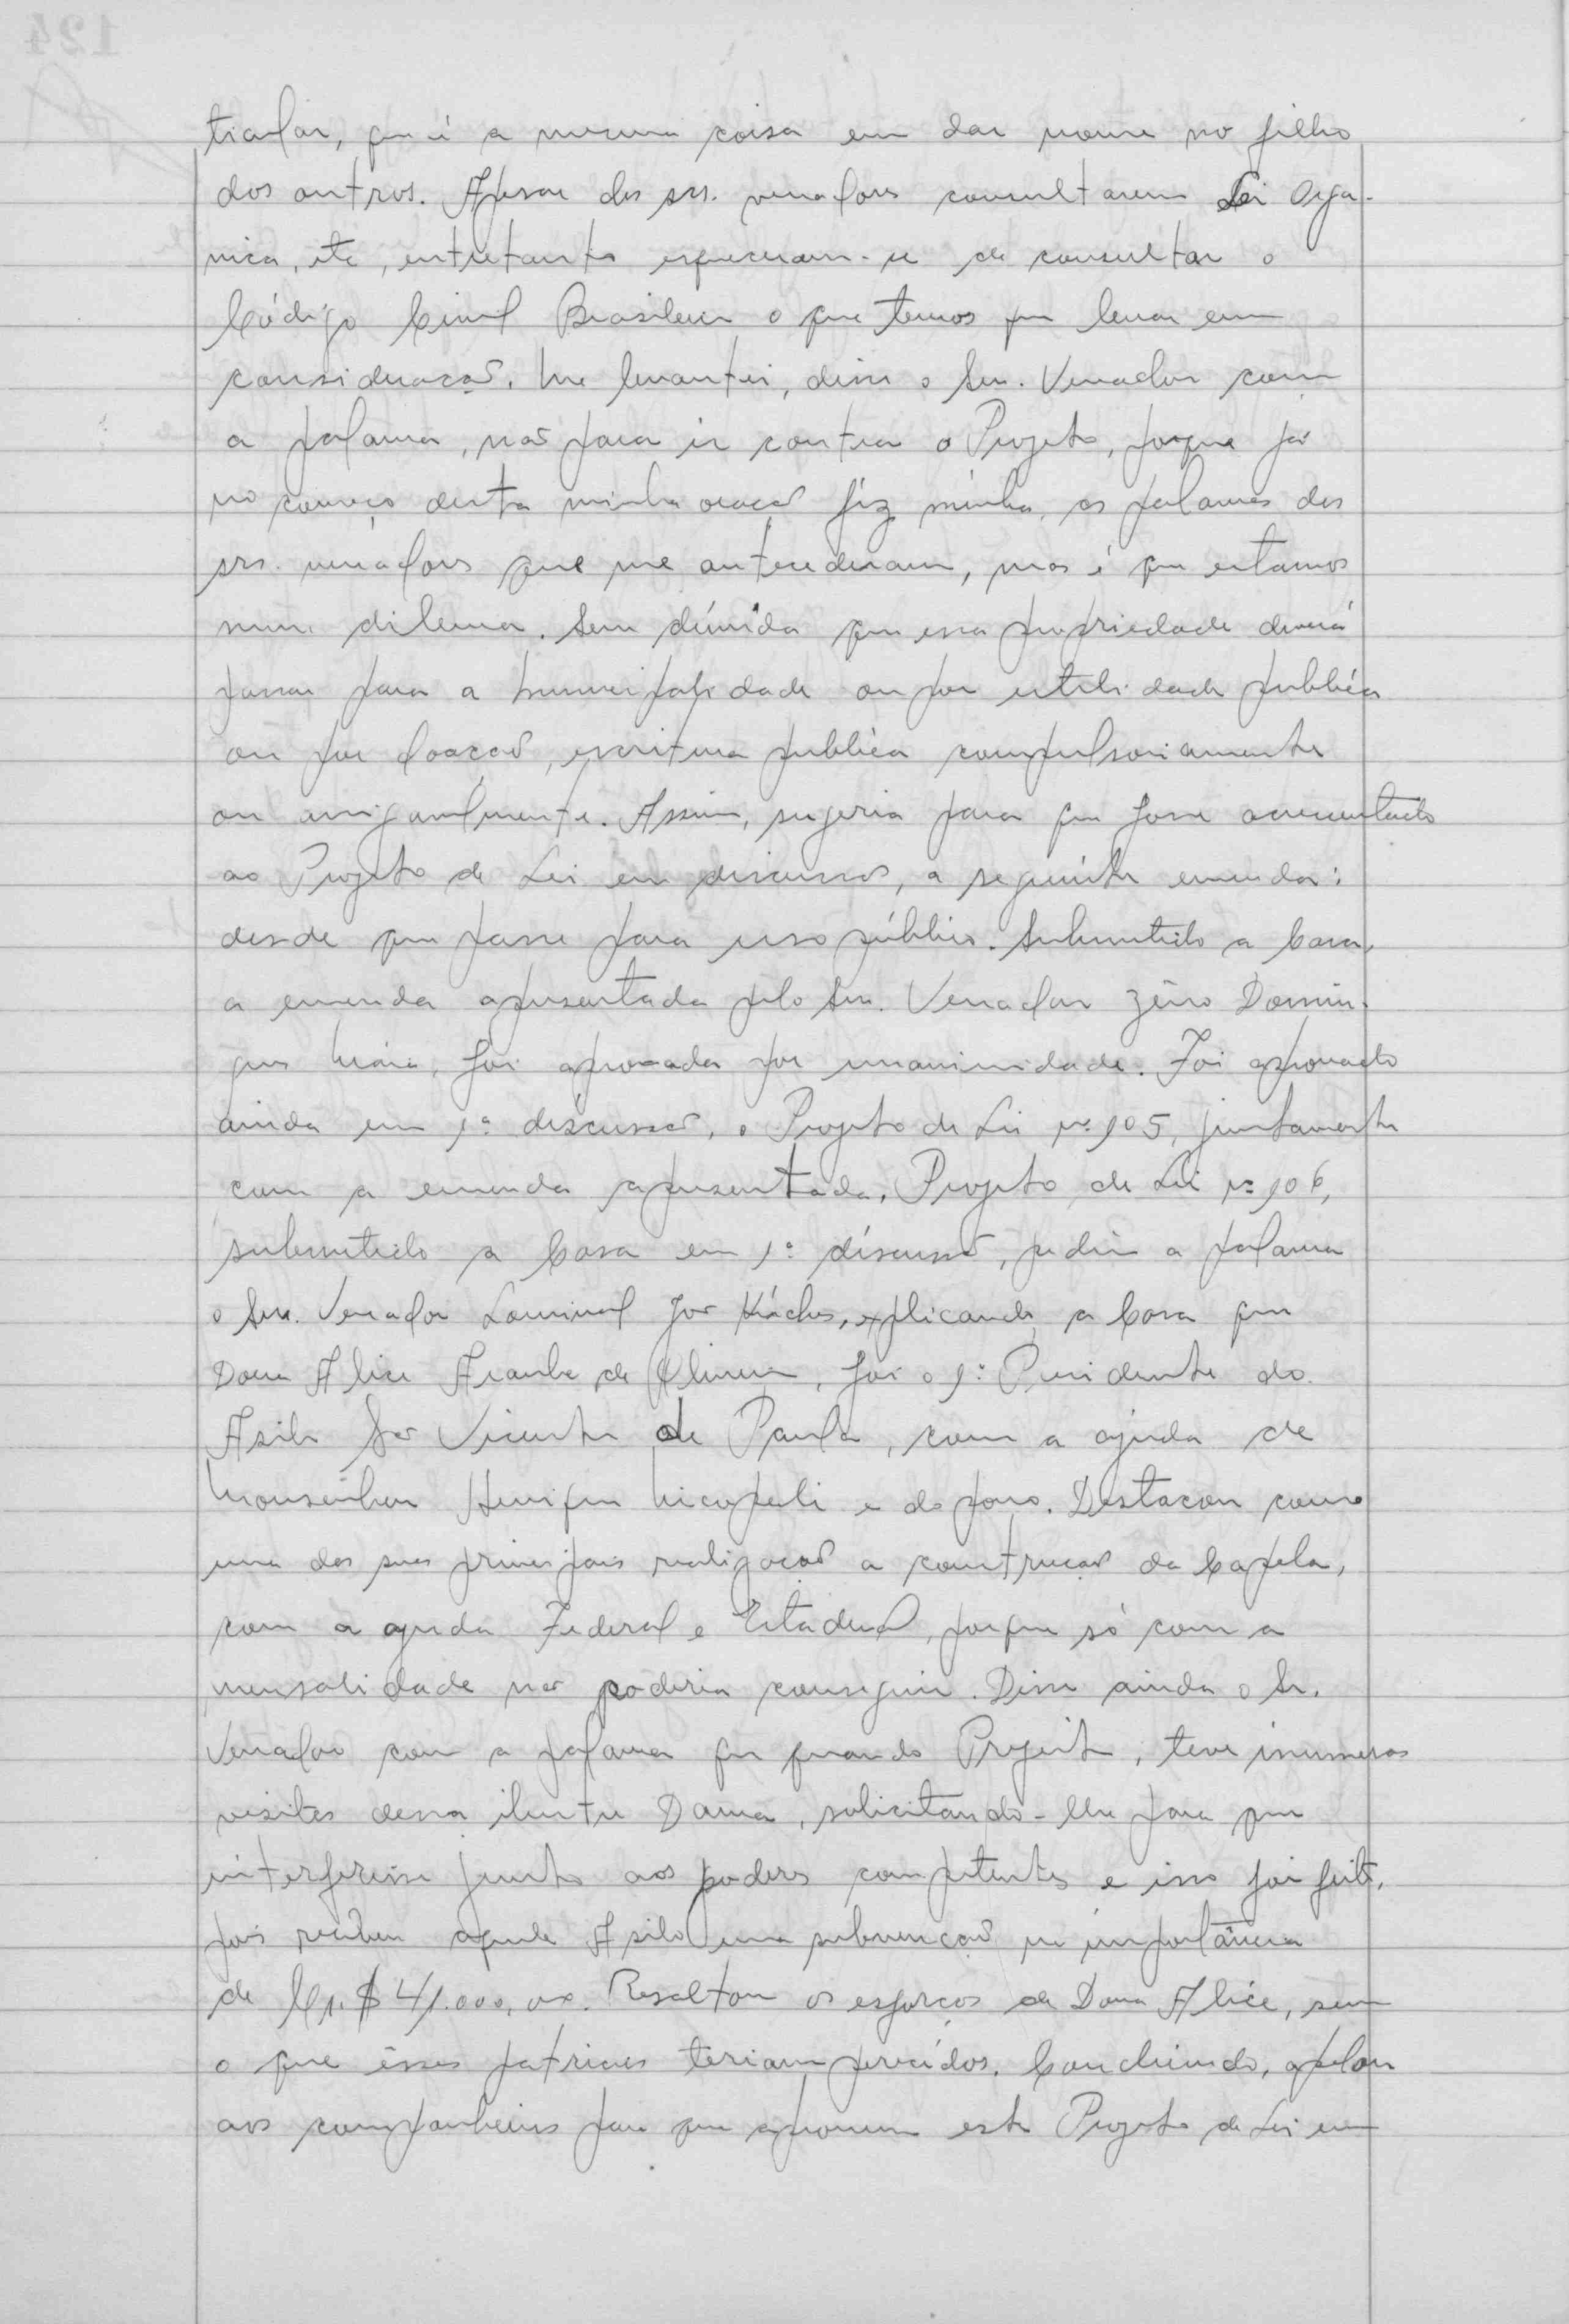 ticular, que é a mesma coisa em dar nome no filho
dos outros. Apesar dos srs. vereadores consultarem Lei Orgâ-
nica, etc, entretanto esqueceram-se de consultar o
Código Civil Brasileiro o que temos que levar em
consideração. Me levantei, disse o Snr. Vereador com
a palavra, não para ir contra o Projeto, porque já
no começo desta minha oração fiz minha, as palavras dos
srs. vereadores que me antecederam, mas é que estamos
num dilema. Sem dúvida que essa propriedade deverá
passar para a Municipalidade ou por utilidade publica
ou por doação, escritura publica compulsoriamente
ou amigavelmente. Assim, sugeria para que fosse acrescentado
ao Projeto de Lei em discussão, a seguinte emenda:
desde que passe para uso público. Submetido a Casa,
a emenda apresentada pelo Snr. Vereador Zeno Domin-
gues Maia, foi aprovada por unanimidade. Foi aprovado
ainda em 1ª discussão, o Projeto de Lei nº 105, juntamente
com a emenda apresentada. Projeto de Lei nº 106,
submetido a Casa em 1ª discussão, pediu a palavra
o Snr. Vereador Lourival José explicando a Casa que
Dona Alice de Oliveira, foi o 1º Presidente do
Asilo São Vicente de Paula, com a ajuda de
Monsenhor Henrique e do povo. Destacou como
uma das suas principais realização a construção da Capela,
com a ajuda Federal e Estadual, porque só com a
mensalidade não poderia conseguir. Disse ainda o Sr.
Vereador com a palavra que quando Prefeito, teve inumeras
visitas dessa ilustre Dama, solicitando-lhe para que
interferisse junto aos poderes competentes e isso foi feito,
pois recebeu aquele Asilo uma subvenção na importância
de Cr.$ 41.000,00. Resaltou os esforços de Dona Alice, sem
o que êsses patricios teriam perecidos. Concluindo, apelou
aos companheiros para que aprovem este Projeto de Lei em